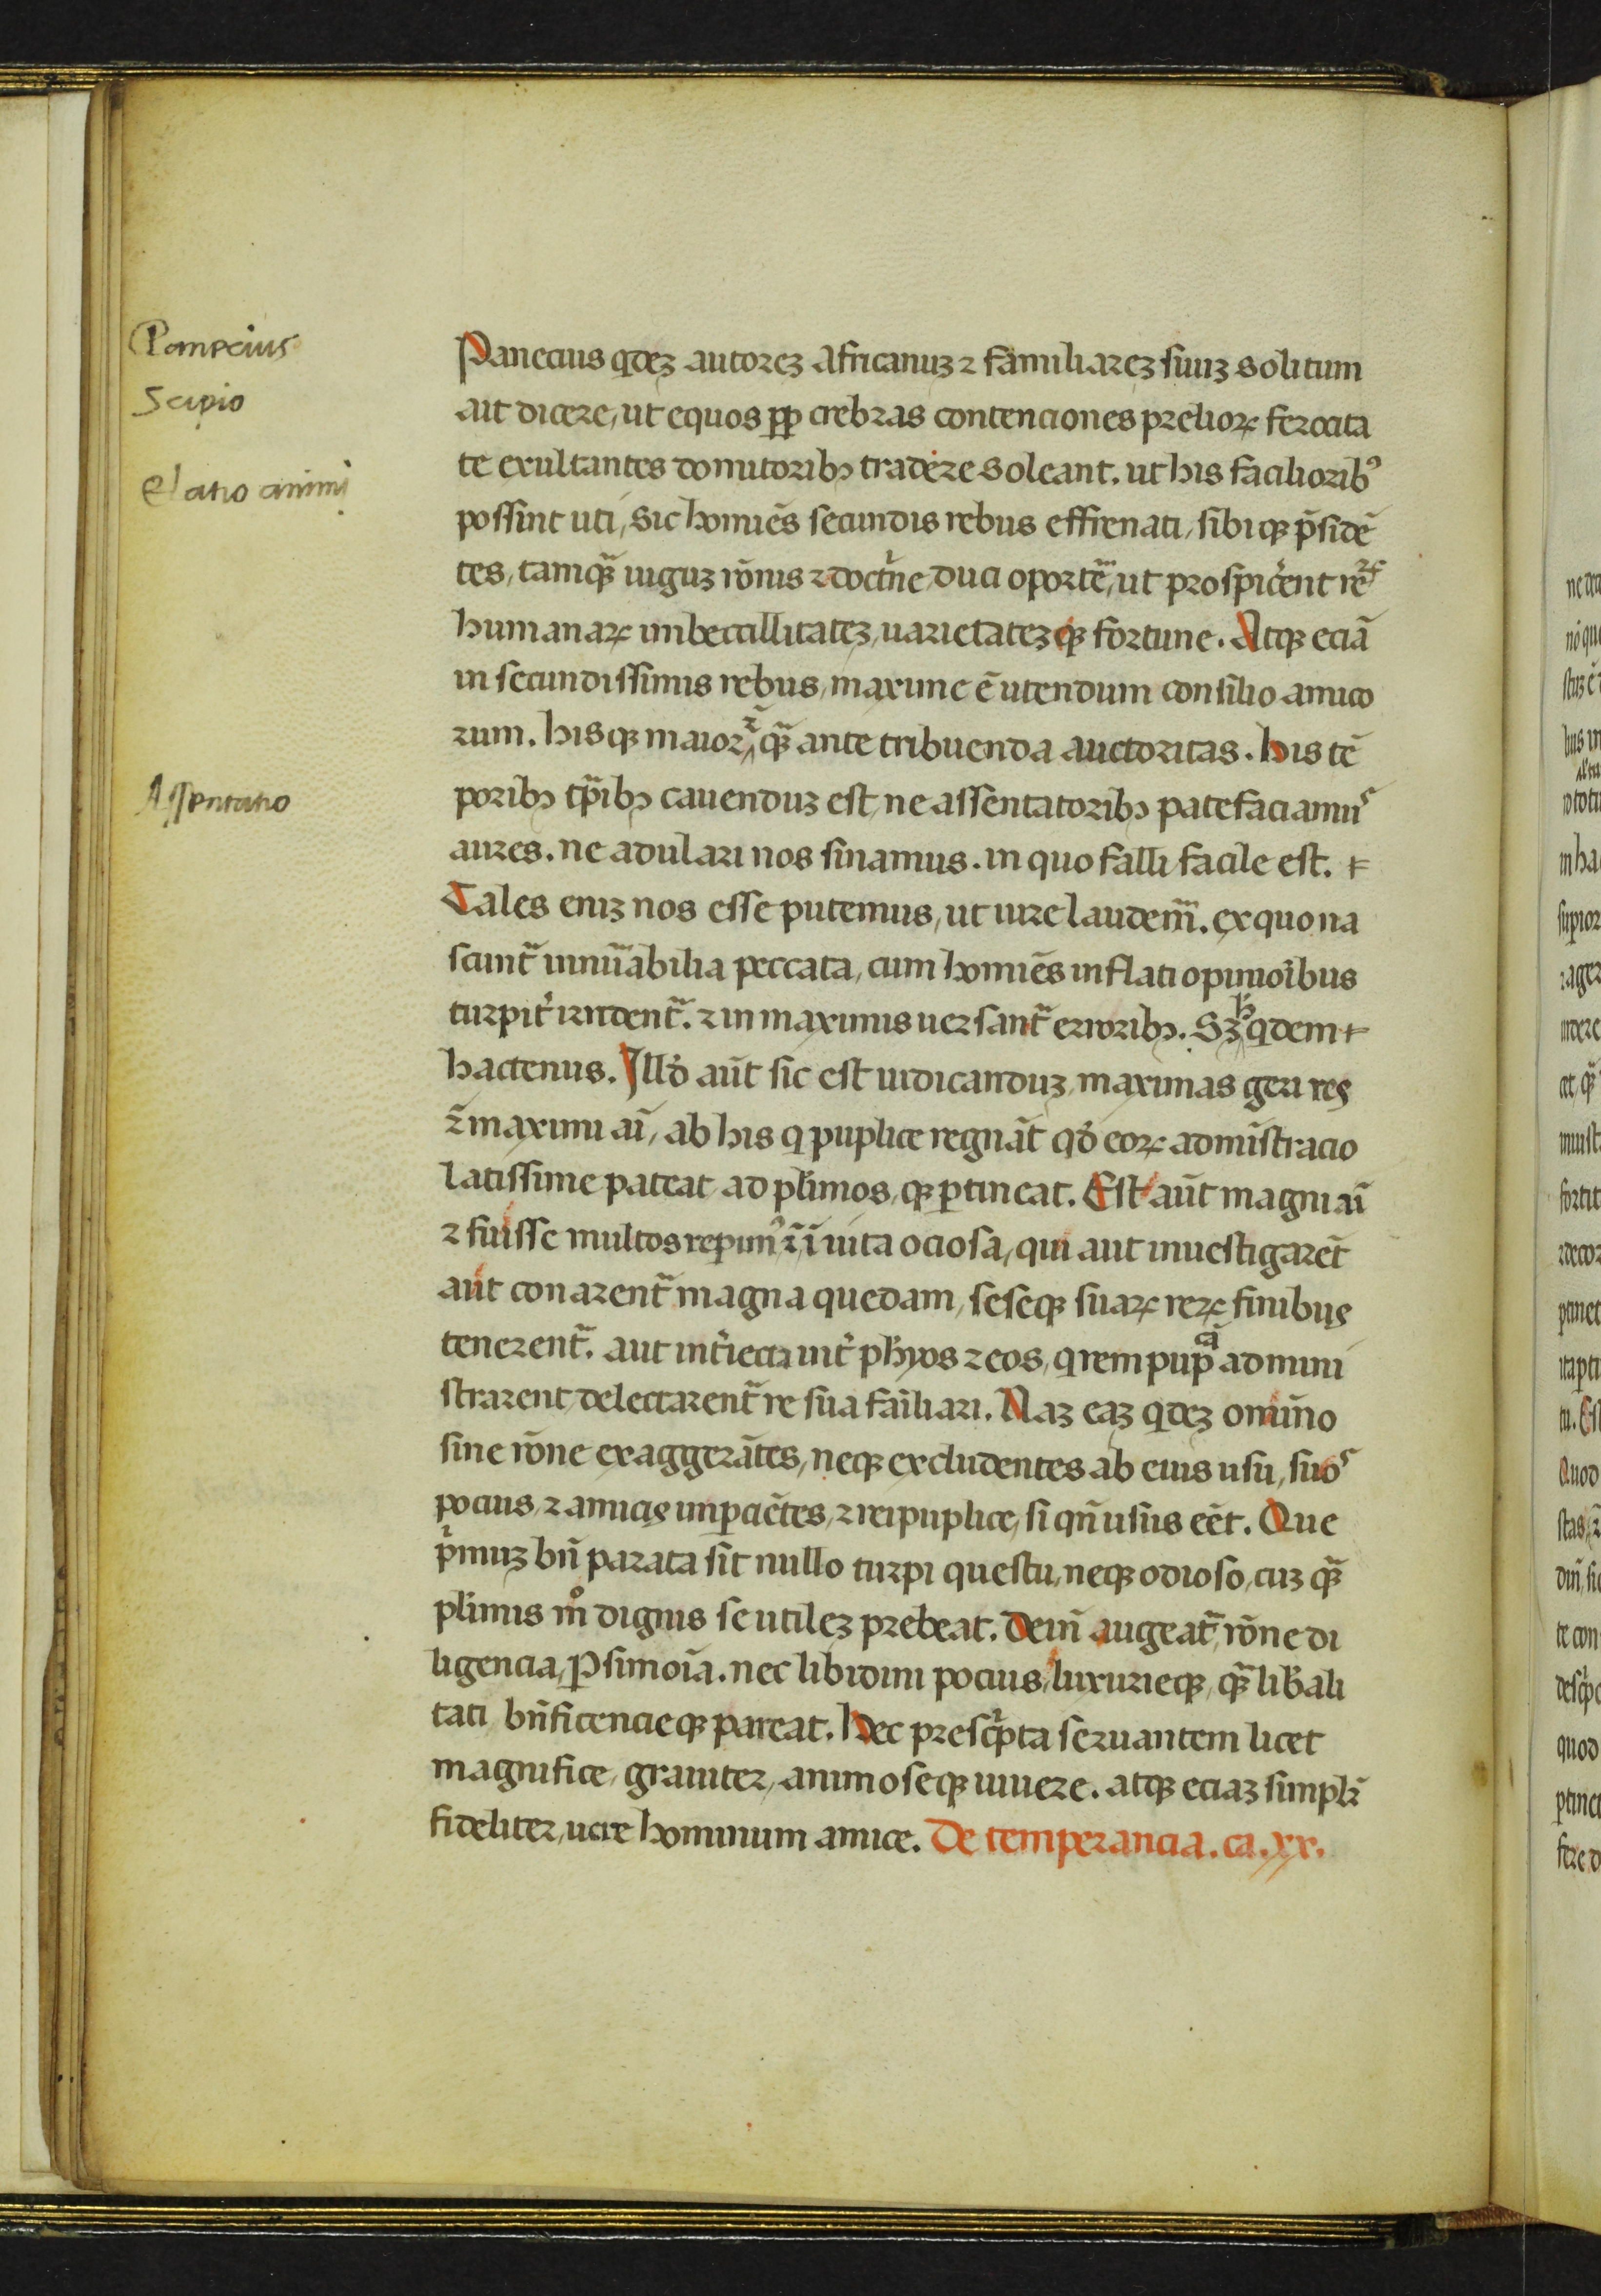 Panecius
Scipio
Elatio animi
Assentatio
Panecius qdeꝫ autoreꝫ Africanuꝫ ⁊ familiareꝫ suuꝫ solitum
ait dicere, ut equos ꝓpꝑ crebras contenciones prelioꝝ ferocita
te exultantes domitoribꝫ tradere soleant. ut his facilioribꝰ
possint uti, sic homiēs secundis rebus effrenati, sibiqꝫ p̄sidē
tes, tamqꝫ̄ iuguꝫ rōnis ⁊ doctͥne duci oportē, ut prospicͥent reꝝ
humanaꝝ imbecillitateꝫ, uarietateꝫqꝫ fortune. Atqꝫ eciā
in secundissimis rebus, maxime ē utendum consilio amico
rum. hisqꝫ maior ⁊̄ qꝫ̄ ante tribuenda auctoritas. his tē
poribꝫ tp̄ibꝫ cauenduꝫ est, ne assentatoribꝫ patefaciamuˢ
aures. ne adulari nos sinamus. in quo falli facile est.
Tales eniꝫ nos esse putemus, ut iure laudem̄. ex quo na
scunt̄ innūabilia peccata, cum homiēs inflati opinioībus
turpit͛ irident̄. ⁊ in maximis uersant̄ erroribꝫ. Sꝫ h̄ qdem
hactenus. Illḋ aūt sic est iudicanduꝫ, maximas geri res
⁊̄ maximi aī, ab his q puplice regnāt qḋ eoꝝ admīstracio
latissime pateat ad pl̄imos, qꝫ ꝑtineat. Est aūt magni aī
⁊ fuisse multos reꝑimꝰ ⁊̄ ī uita ociosa, qui aut inuestigarēt
aut conarent̄ magna quedam, seseqꝫ suaꝝ reꝝ finibus
tenerent̄. aut int͛iecti int͛ ph̄yos ⁊ eos, q rem pupͨᵃ admini
strarent, delectarent̄ re sua faīliari. Naꝫ eaꝫ qdeꝫ omīno
sine rōne exaggerātes, neqꝫ excludentes ab eius usu, suoˢ
pocius, ⁊ amicis impaciētes, ⁊ reipuplice, si qn̄ usus eēt. Que
pͥmuꝫ bn̄ parata sit nullo turpi questu, neqꝫ odioso, cuꝫ qꝫ̄
pl̄imis mͦ dignis se utileꝫ prebeat. Dein̄ augeat̄, rōne di
ligencia, ꝑsimoīa. nec libidini pocius, luxurieqꝫ, qꝫ̄ lib̄ali
tati bn̄ficencieqꝫ pareat. Hec prescͥpta seruantem licet
magnifice, grauiter, animoseqꝫ uiuere. atqꝫ eciaꝫ simplr̄
fideliter, uere hominum amice. De temperancia. ca. xx.